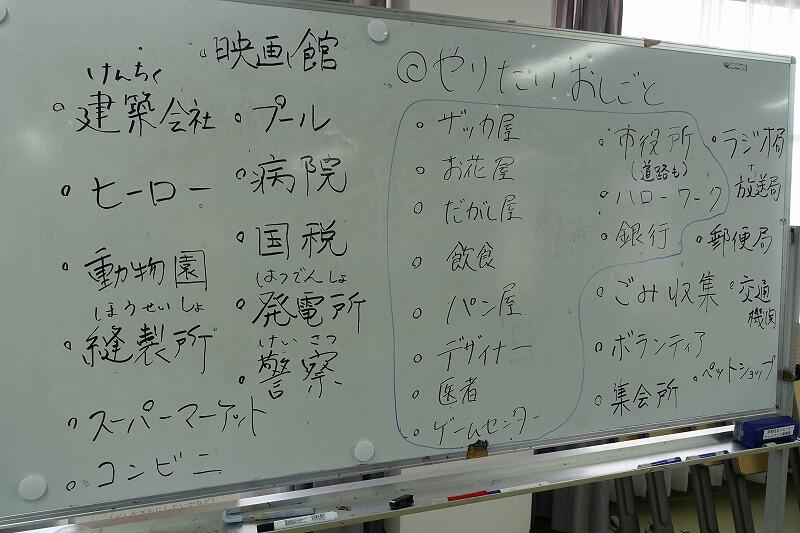 ◎やりたいおしごと
・ザッカ屋
・お花屋
・だがし屋
・飲食
・パン屋
・デザイナー
・医者
・ゲームセンター
・市役所
(道路も)
・ハローワーク
・銀行
・ごみ収集
・ボランティア
・集会所
・ラジオ局
+
放送局
・郵便局
・交通
機関
・ペットショップ
・映画館
けんちく
・建築会社
・ヒーロー
・動物園
ほうせいしょ
・縫製所
・スーパーマーケット
・コンビニ
・プール
・病院
・国税
はつでんしょ
・発電所
けいさつ
・警察